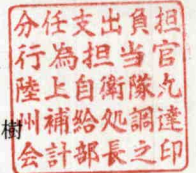 分任支出負担
行為担当官
陸上自衛隊九
州補給処調達
会計部長之印
樹